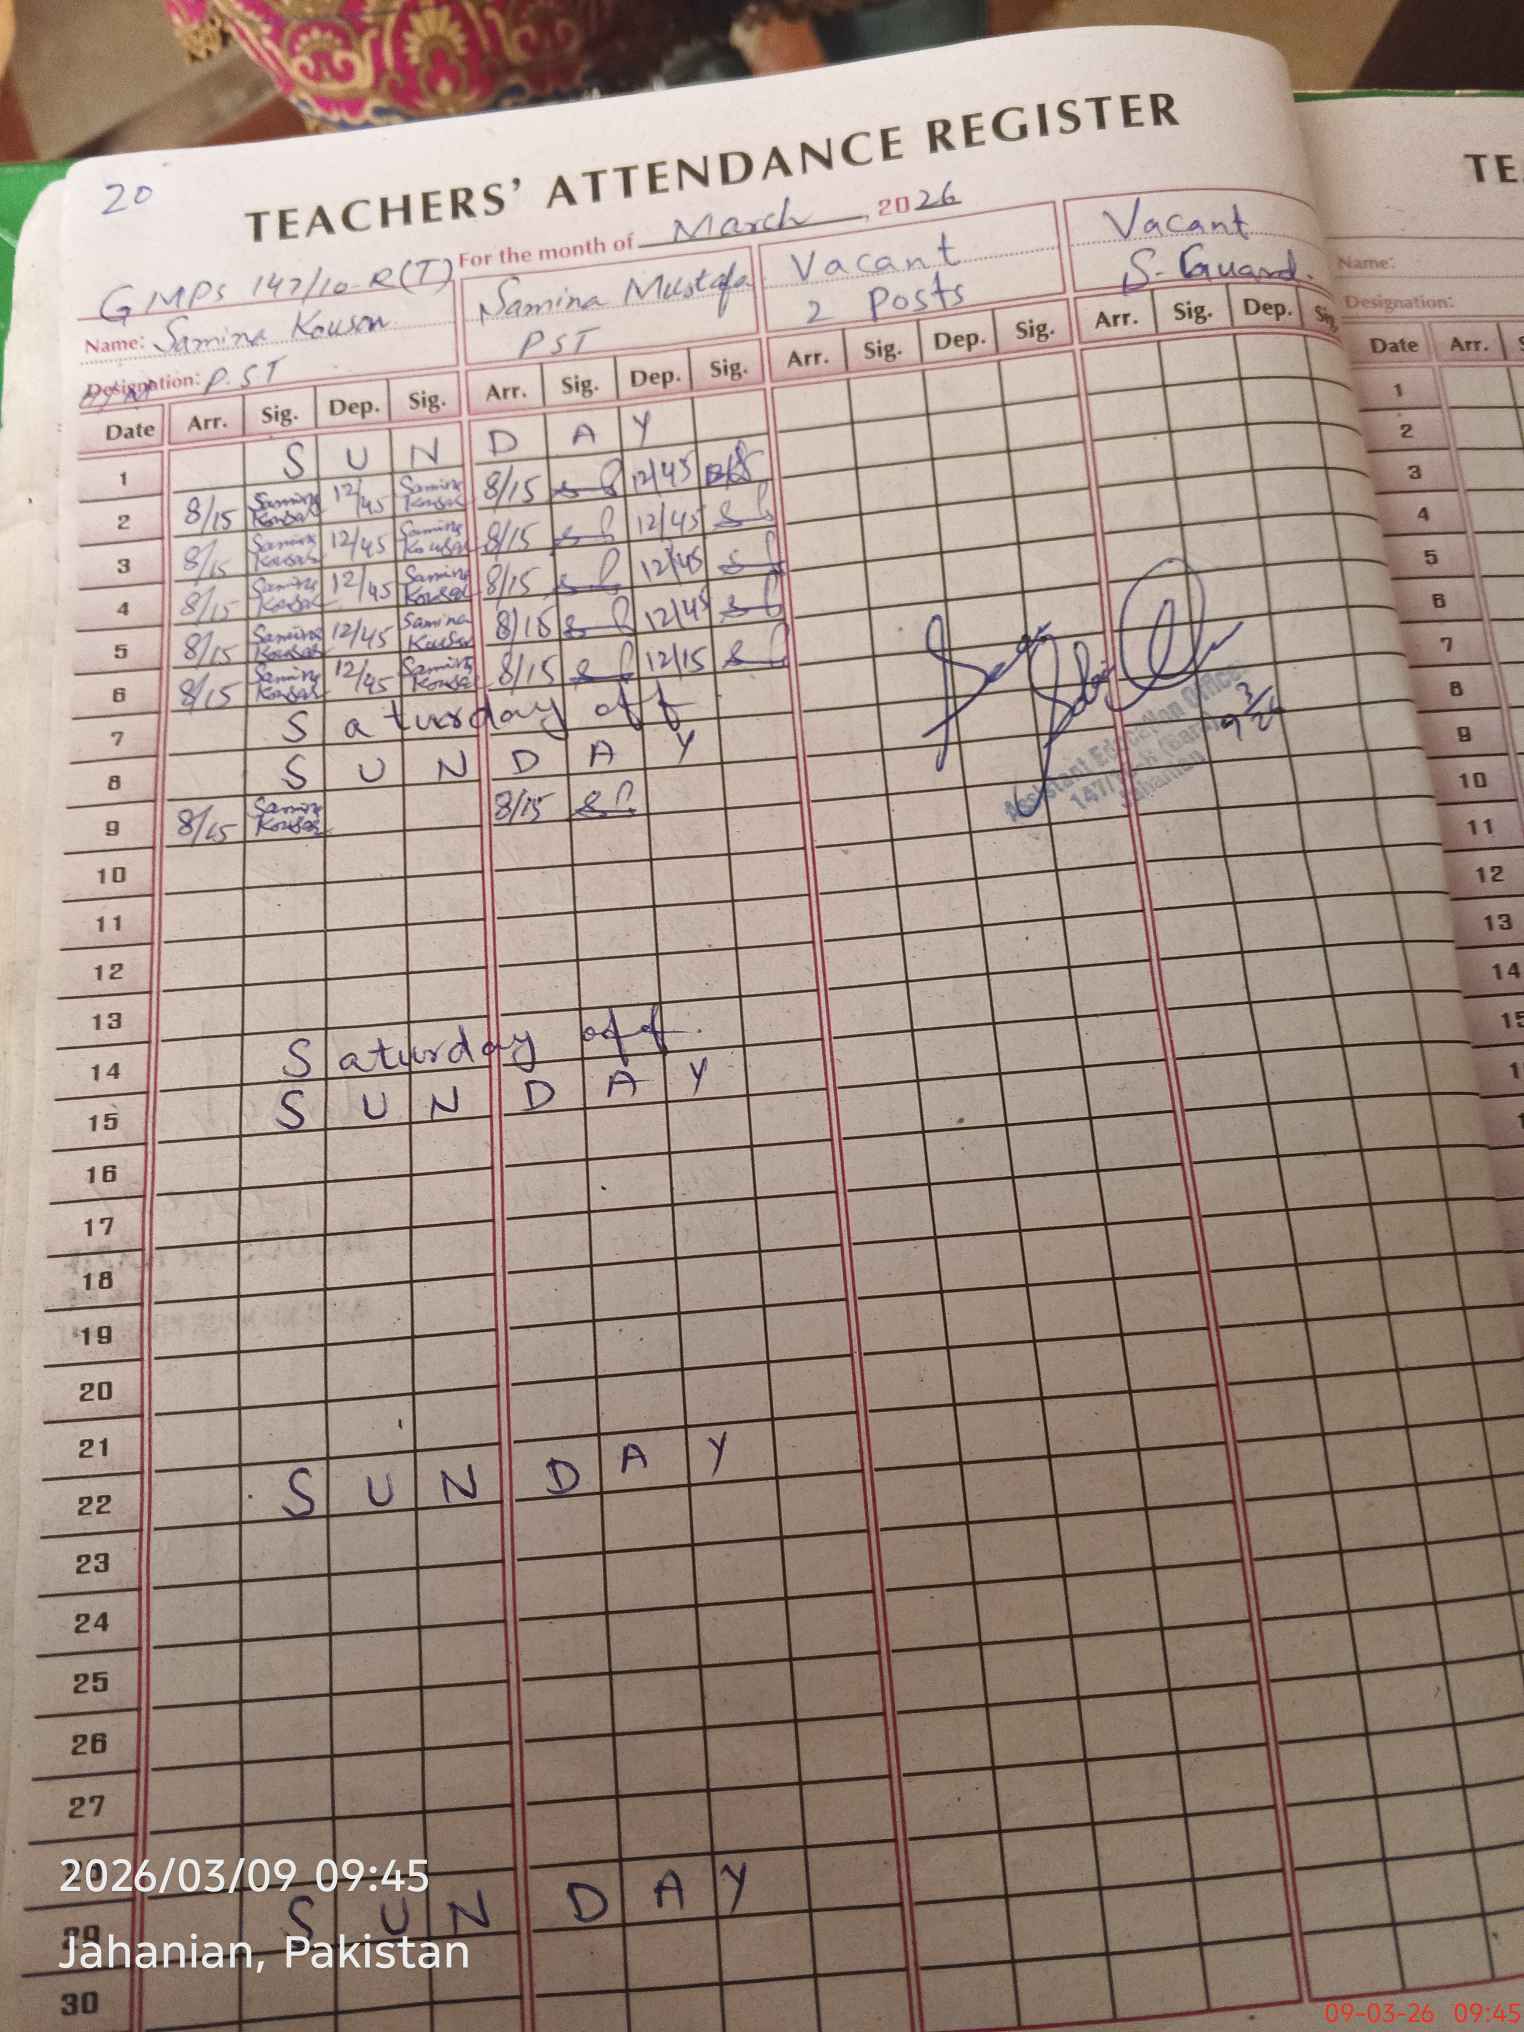 20
TEACHERS' ATTENDANCE REGISTER
For the month of March, 2026
GMPS 147/10-R(T)
Name: Samina Kousar
Designation: P.ST
Samina Mustafa
PST
Vacant
2 Posts
Vacant
S. Guard.
Date Arr. Sig. Dep. Sig. Arr. Sig. Dep. Sig. Arr. Sig. Dep. Sig. Arr. Sig. Dep. Sig.
1 S U N D A Y
2 8/15 Samina Kousar 12/45 Samina Kousar 8/15 12/45
3 8/15 Samina Kousar 12/45 Samina Kousar 8/15 12/45
4 8/15 Samina Kousar 12/45 Samina Kousar 8/15 12/45
5 8/15 Samina Kousar 12/45 Samina Kousar 8/15 12/45
6 8/15 Samina Kousar 12/45 Samina Kousar 8/15 12/15
7 Saturday off
8 S U N D A Y
9 8/15 Samina Kousar 8/15
10
11
12
13
14 Saturday off.
15 S U N D A Y
16
17
18
19
20
21
22 S U N D A Y
23
24
25
26
27
29 S U N D A Y
30
Assistant Education Officer
Jahanian
TE
Name:
Designation:
Date Arr. S
1
2
3
4
5
6
7
8
9
10
11
12
13
14
15
2026/03/09 09:45
Jahanian, Pakistan
09-03-26 09:45